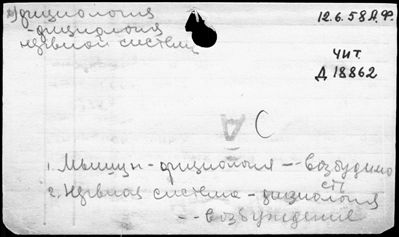 физиология
- физиология
нервной систем
12.6.58 А.Ф.
Чит.
Д 18862
С
1. Мышцы - физиология -- возбудимо
сть
2. Нервная система - физиология
-- возбуждение